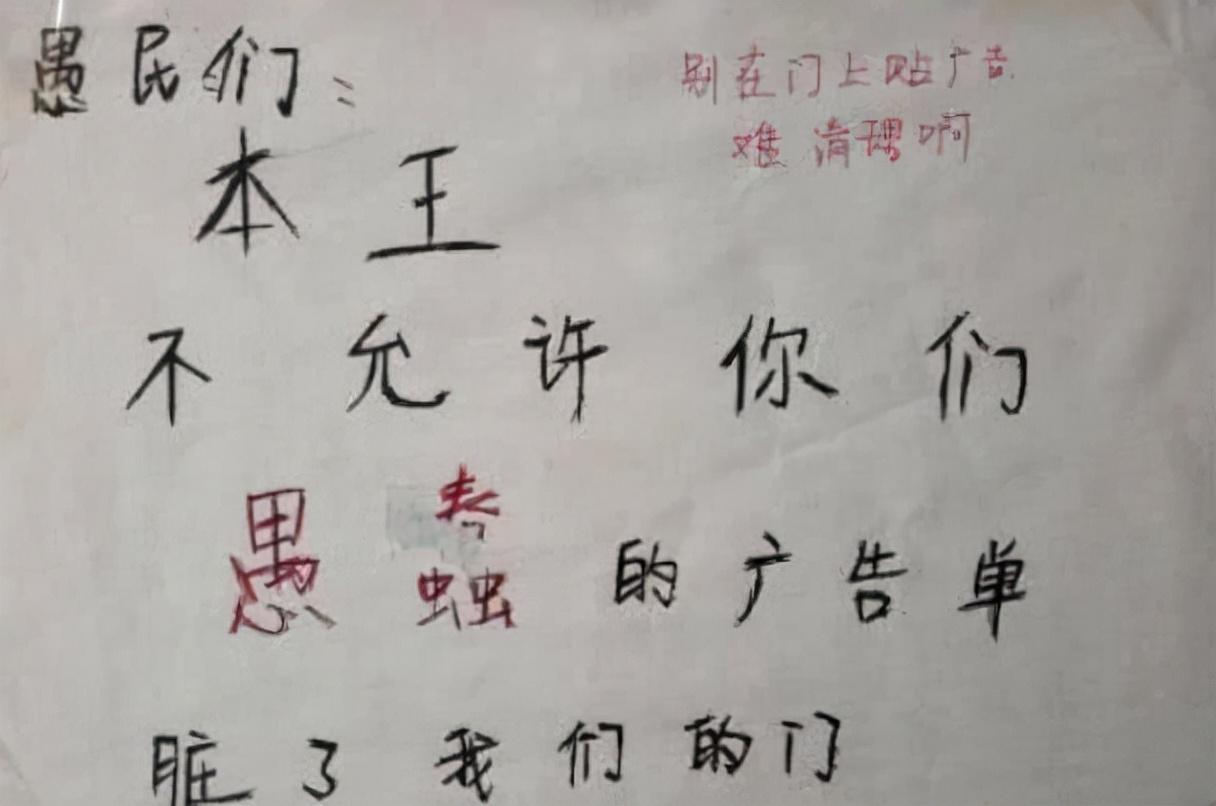 愚民们：
别在门上贴广告
难清理啊
本王
不允许你们
愚蠢的广告单
脏了我们的门